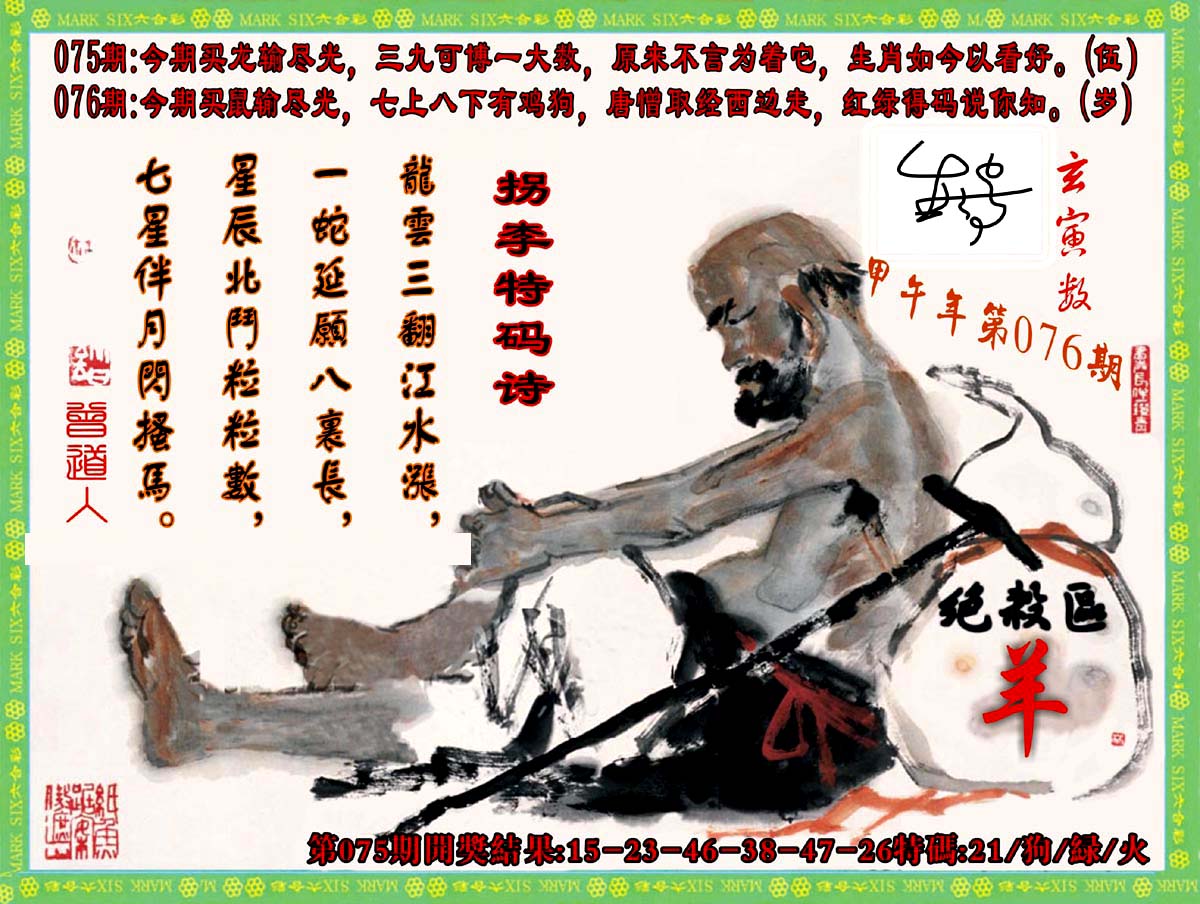 MARK SIX六合彩
075期:今期买龙输尽光，三九可博一大数，原来不言为着它，生肖如今以看好。(伍)
076期:今期买鼠输尽光，七上八下有鸡狗，唐憎取经西边走，红绿得码说你知。(岁)
玄寅数
甲午年第076期
拐李特码诗
龍雲三翻江水漲，
一蛇延願八裏長，
星辰北鬥粒粒數，
七星伴月閃搔馬。
曾道人
绝殺區
羊
第075期開獎結果:15-23-46-38-47-26特碼:21/狗/緑/火